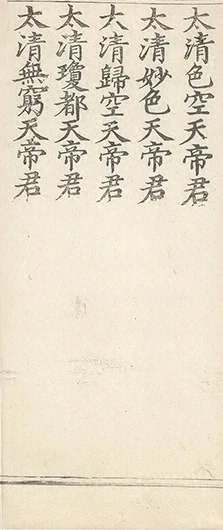 太清色空天帝君
太清妙色天帝君
太清歸空天帝君
太清瓊都天帝君
太清無窮天帝君